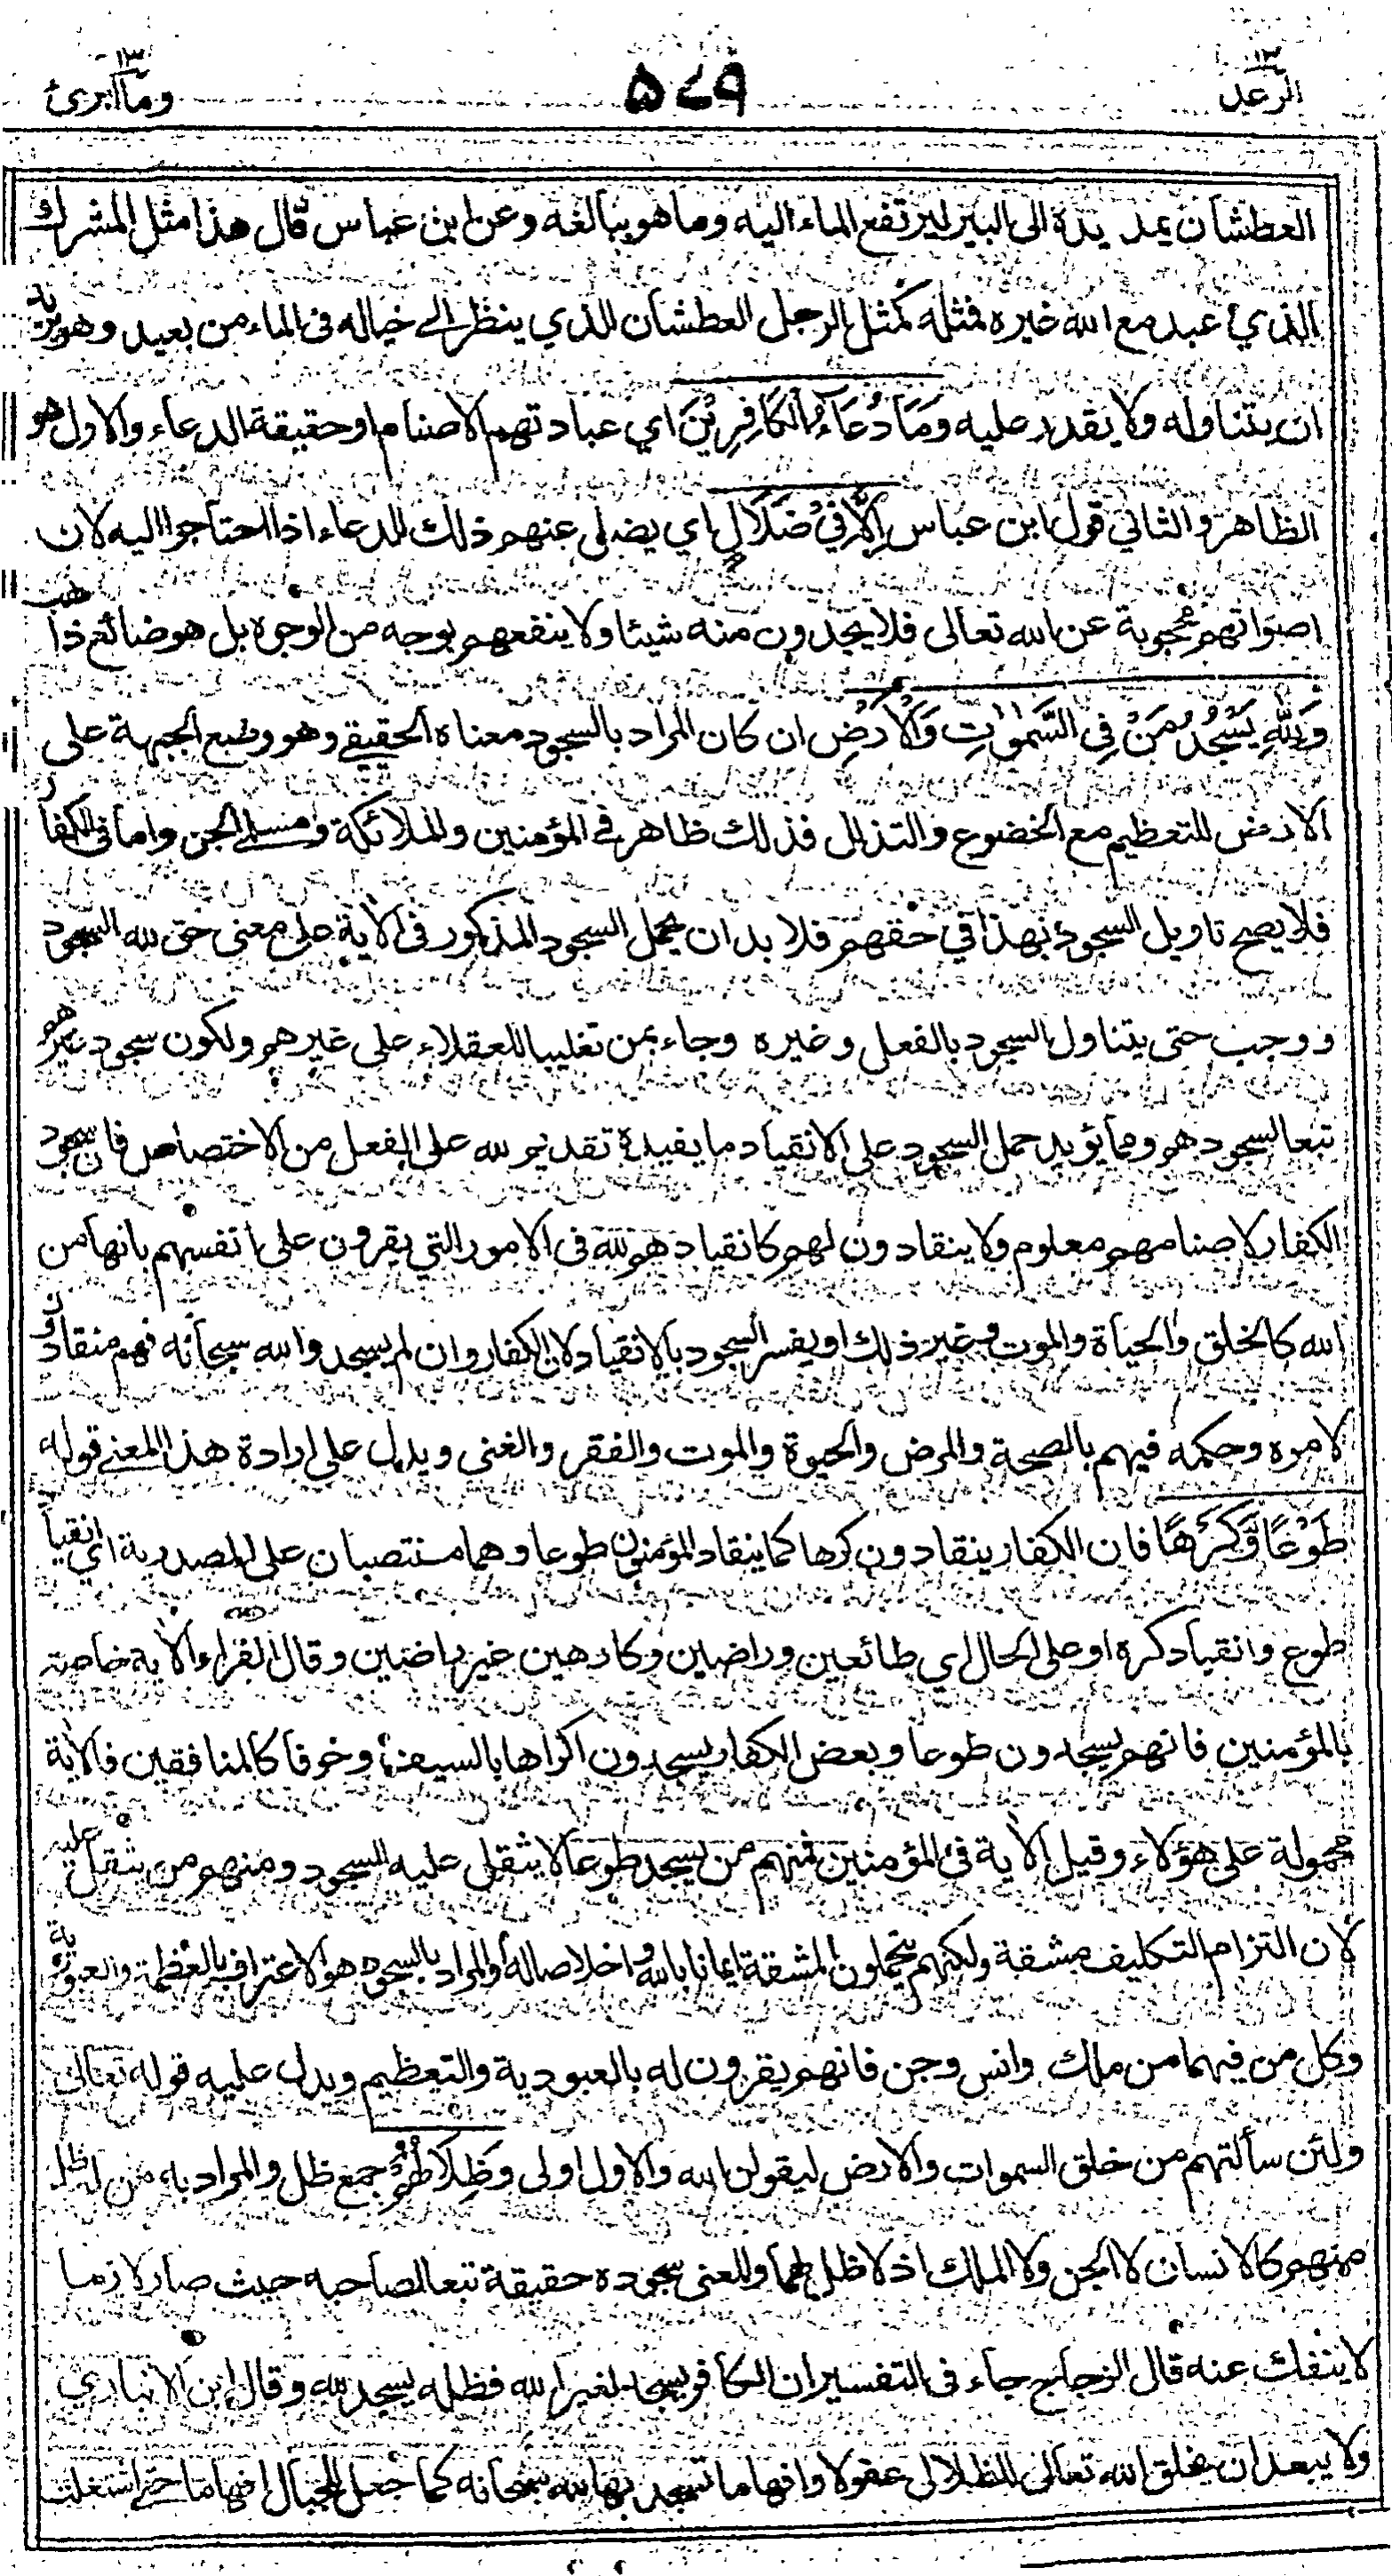 الرعد ١٣
٥٧٩
وما أبرئ ١٣
العطشان يمد يده الى البير ليرتفع الماء اليه وما هو ببالغه وعن ابن عباس قال هذا مثل المشرك
الذي عبد مع الله غيره فمثله كمثل الرجل العطشان الذي ينظر الى خياله فى الماء من بعيد وهو يريد
ان يتناوله ولا يقدر عليه وَمَا دُعَاءُ الْكَافِرِيْنَ اي عبادتهم الاصنام او حقيقة الدعاء والاول هو
الظاهر والثاني قول ابن عباس اِلَّا فِيْ ضَلَالٍ اي يضل عنهم ذلك الدعاء اذا احتاجوا اليه لان
اصواتهم محجوبة عن الله تعالى فلا يجدون منه شيئا ولا ينفعهم بوجه من الوجوه بل هو ضائع ذاهب
وَلِلّٰهِ يَسْجُدُ مَنْ فِي السَّمٰوٰتِ وَالْاَرْضِ ان كان المراد بالسجود معناه الحقيقي وهو وضع الجبهة على
الارض للتعظيم مع الخضوع والتذلل فذلك ظاهر في المؤمنين والملائكة ومسلمي الجن واما في الكفار
فلا يصح تاويل السجود بهذا في حقهم فلا بد ان يحمل السجود المذكور فى الآية على معنى حق لله السجود
ووجب حتى يتناول السجود بالفعل وغيره وجاء بمن تغليبا للعقلاء على غيرهم ولكون سجود غيرهم
تبعا لسجودهم ومما يؤيد حمل السجود على الانقياد ما يفيده تقديم لله على الفعل من الاختصاص فان سجود
الكفار لاصنامهم معلوم ولا ينقادون لهم كانقيادهم لله فى الامور التي يقرون على انفسهم بانها من
الله كالخلق والحياة والموت وغير ذلك او يفسر السجود بالانقياد لان الكفار وان لم يسجدوا لله سبحانه فهم منقادون
لامره وحكمه فيهم بالصحة والمرض والحيوة والموت والفقر والغنى ويدل على ارادة هذا المعنى قوله
طَوْعًا وَّكَرْهًا فان الكفار ينقادون كرها كما ينقاد المؤمنون طوعا وهما منتصبان على المصدرية اي انقياد
طوع وانقياد كره او على الحال اي طائعين وراضين وكارهين غير راضين وقال الفراء الآية خاصة
بالمؤمنين فانهم يسجدون طوعا وبعض الكفار يسجدون اكراها بالسيف وخوفا كالمنافقين فالآية
محمولة على هؤلاء وقيل الآية فى المؤمنين فمنهم من يسجد طوعا لا يثقل عليه السجود ومنهم من يثقل عليه
لان التزام التكليف مشقة ولكنهم يتحملون المشقة ايمانا بالله واخلاصا له والمراد بالسجود هو الاعتراف بالعظمة والعبودية
وكل من فيهما من ملك وانس وجن فانهم يقرون له بالعبودية والتعظيم ويدل عليه قوله تعالى
ولئن سألتهم من خلق السموات والارض ليقولن الله والاول اولى وَظِلَالُهُمْ جمع ظل والمراد به من له ظل
منهم كالانسان لا الجن ولا الملك اذ لا ظل لهما والمعنى سجوده حقيقة تبعا لصاحبه حيث صار لازما
لا ينفك عنه قال الزجاج جاء فى التفسير ان الكافر يسجد لغير الله فظله يسجد لله وقال ابن الانباري
ولا يبعد ان يخلق الله تعالى للظلال عقولا وافهاما تسجد بها لله سبحانه كما جعل للجبال افهاما حتى اشتغلت